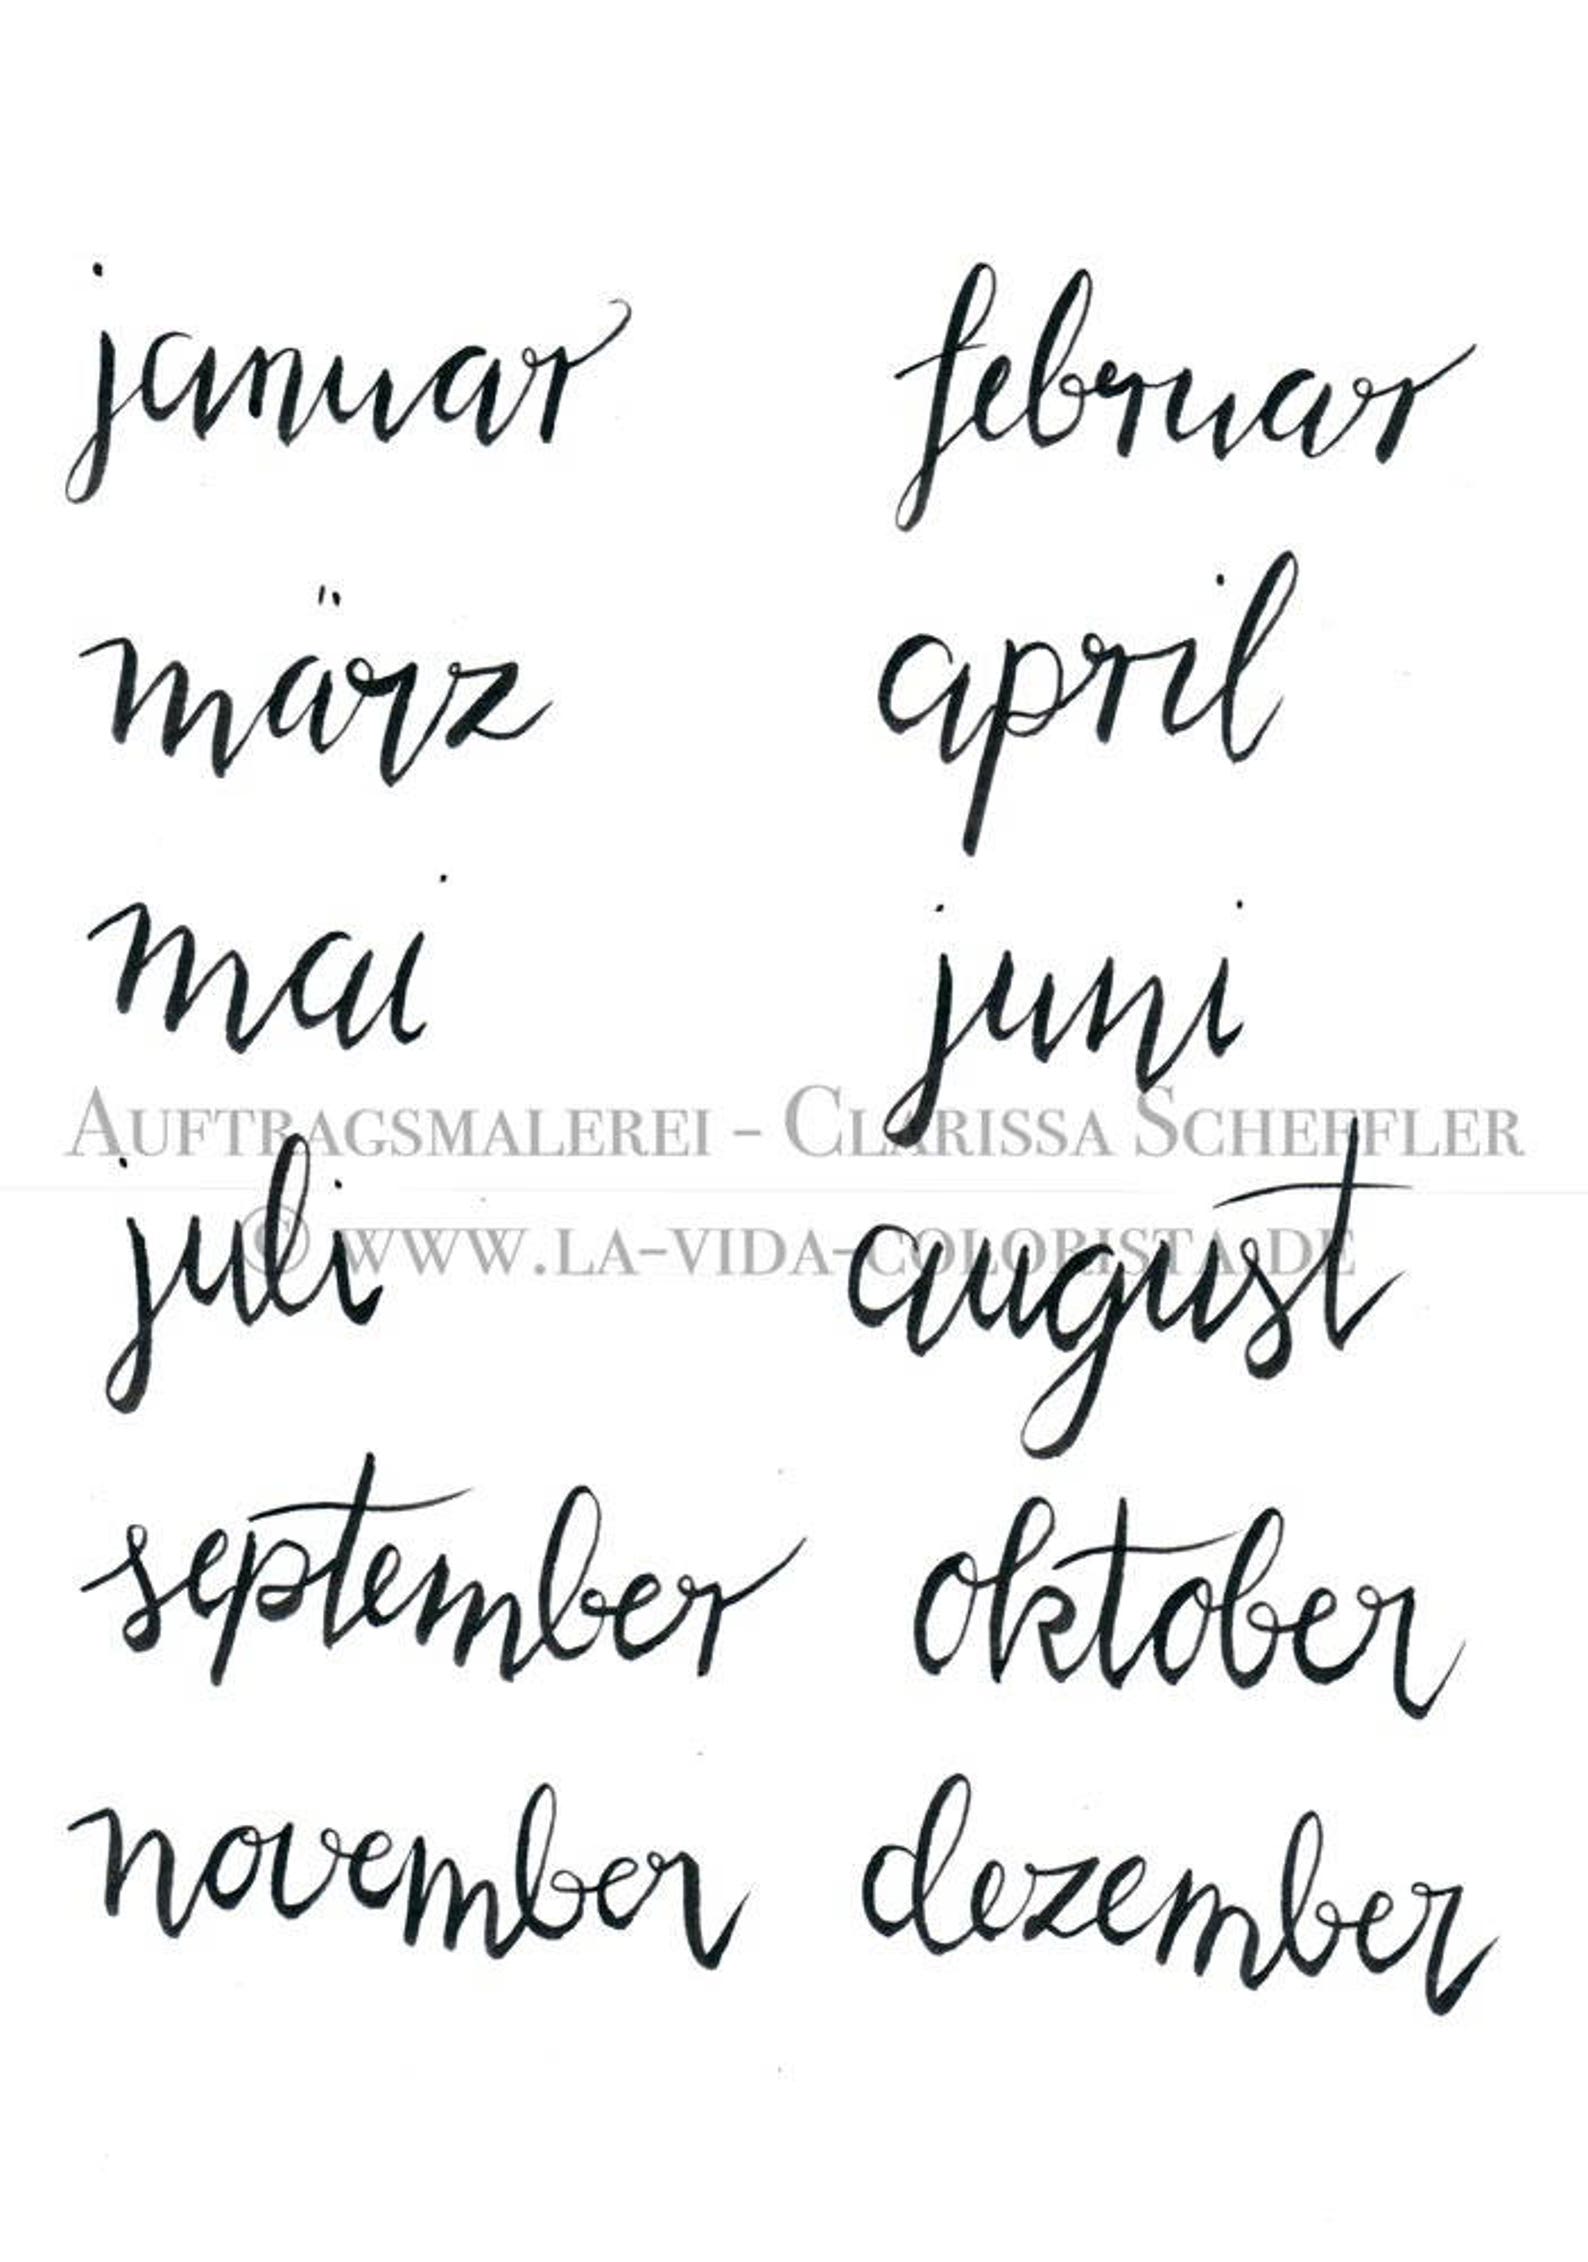 januar februar
märz april
mai juni
AUFTRAGSMALEREI - CLARISSA SCHEFFLER
juli august
© WWW.LA-VIDA-COLORISTA.DE
september oktober
november dezember